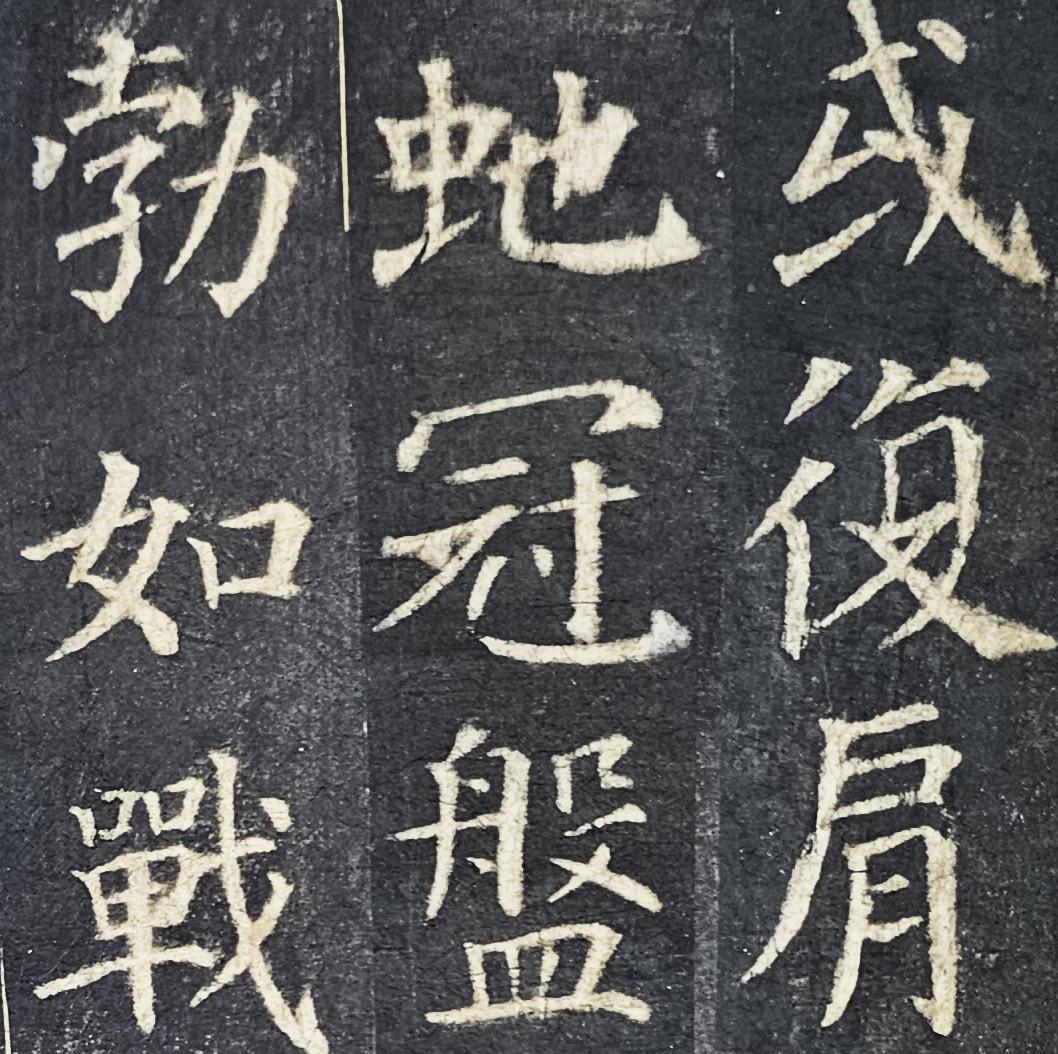 或復肩
虵冠盤
勃如戰